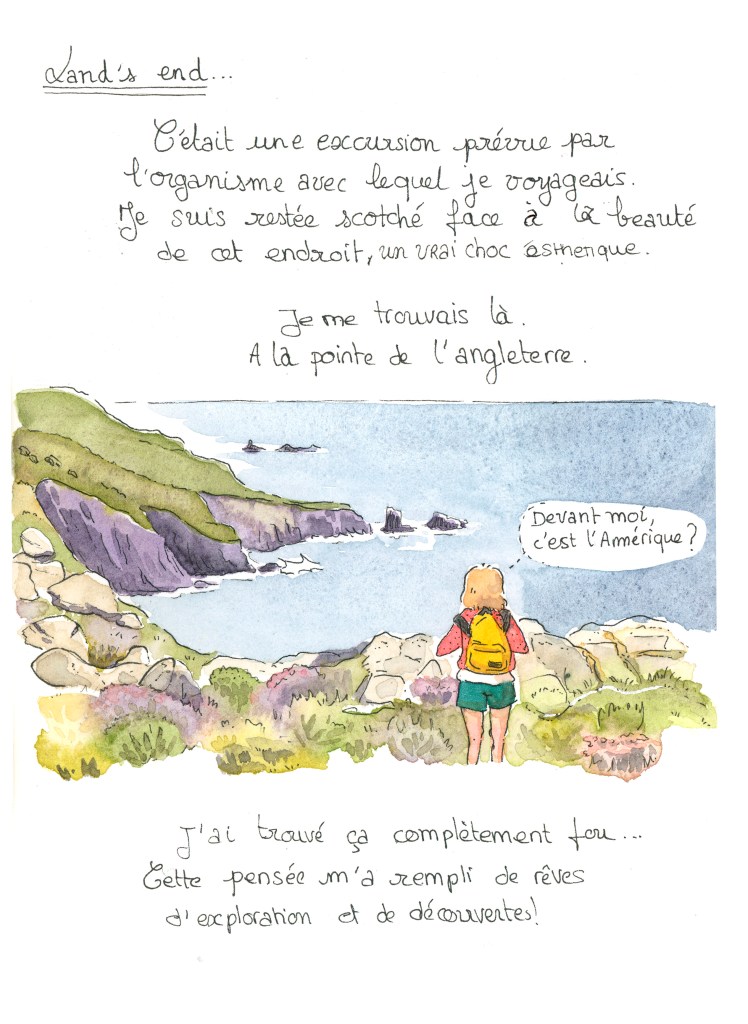 Land's end...
C'était une excursion prévue par
l'organisme avec lequel je voyageais.
Je suis restée scotché face à la beauté
de cet endroit, un vrai choc
Je me trouvais là.
A la pointe de l'angleterre.
Devant moi,
c'est l'Amérique?
J'ai trouvé ça complètement fou...
Cette pensée m'a rempli de rêves
d'exploration et de découvertes!